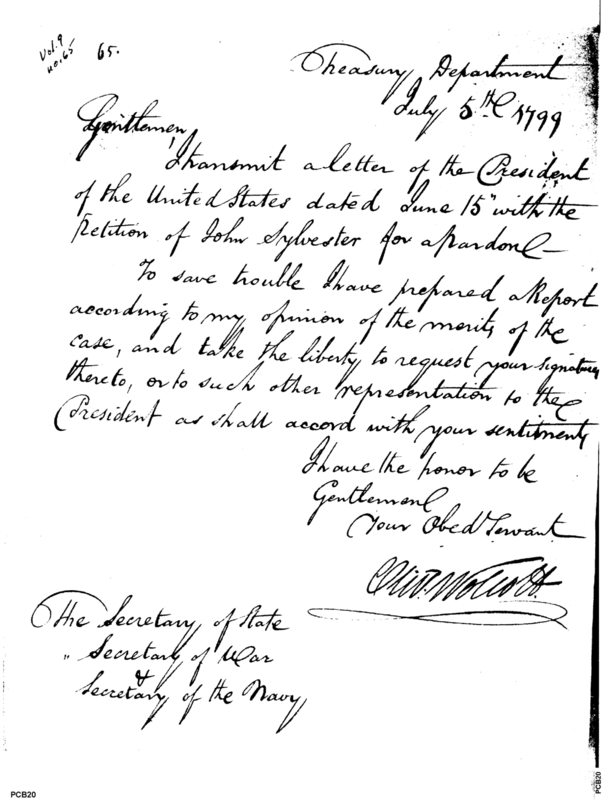 Vol. 9
no. 65
65.
Treasury Department
July 5th 1799
Gentlemen,
I transmit a letter of the President
of the United States dated June 15" with the
Petition of John Sylvester for a Pardon—
To save trouble I have prepared a Report
according to my opinion of the merits of the
case, and take the liberty to request your signatures
thereto, or to such other representation to the
President as shall accord with your sentiments
I have the honor to be
Gentlemen
Your Obed Servant
Oliv. Wolcott.
The Secretary of State
" Secretary of War
&
Secretary of the Navy
PCB20
PCB20